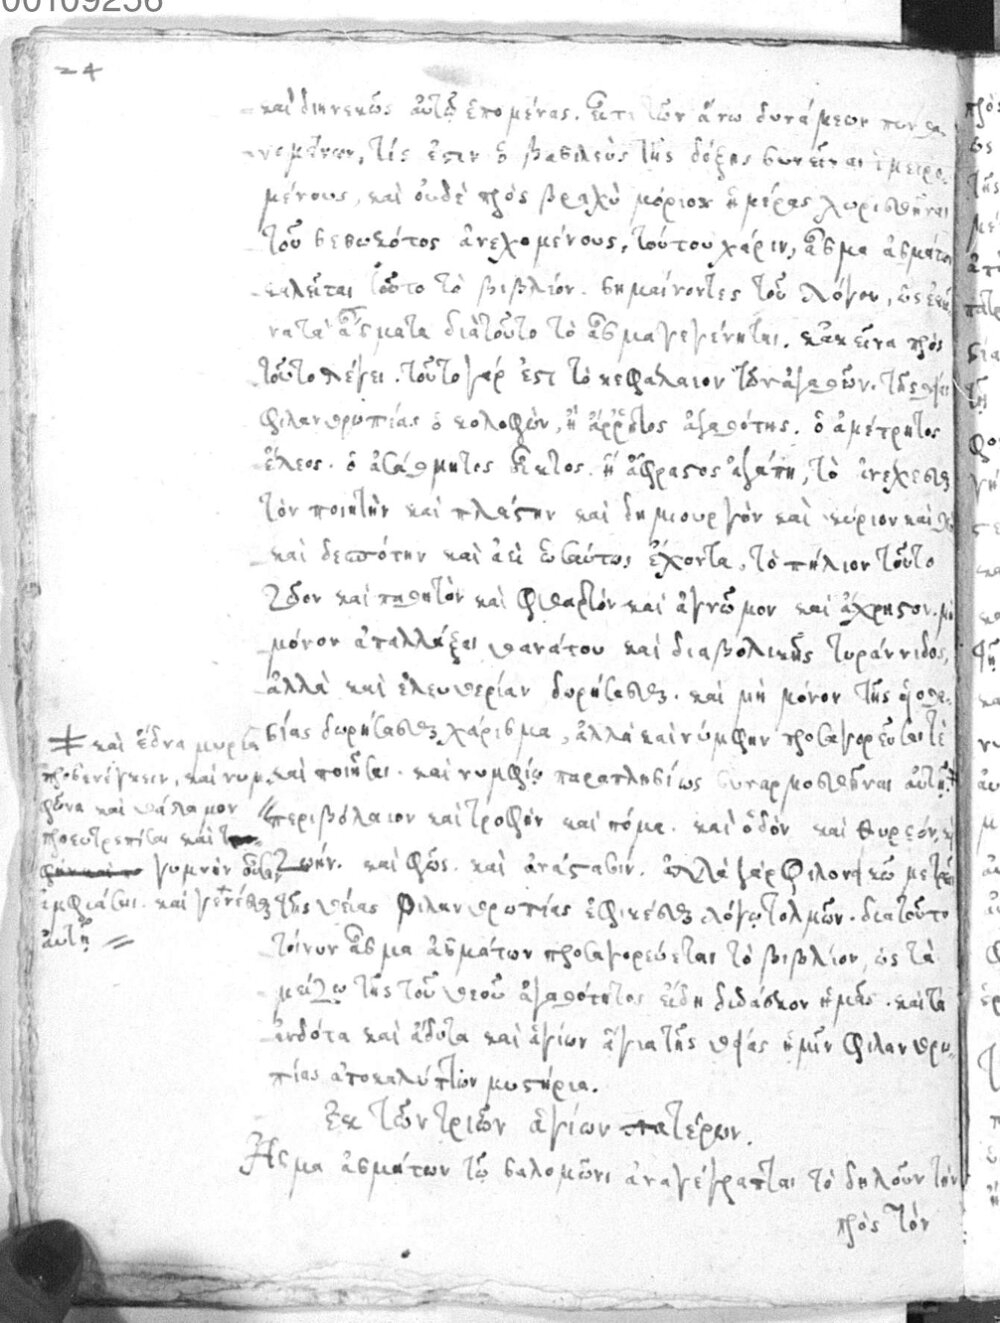 00109256
24
καὶ διηνεκῶς αὐτῷ ἑπομένας. ἔτι τῶν ἄνω δυνάμεων
νομένων, τίς ἐστιν ὁ βασιλεὺς τῆς δόξης συνεῖναι ἱμειρο
μένους, καὶ οὐδὲ πρὸς βραχὺ μόριον ἡμέρας χωρισθῆναι
τοῦ πεθωκότος ἀνεχομένους, τούτου χάριν, ᾆσμα ᾀσμάτων
καλεῖται τοῦτο τὸ βιβλίον. σημαίνοντες τοῦ λόγου, ὡς ἐκεῖ
να τὰ ᾄσματα διὰ τοῦτο τὸ ᾆσμα γεγένηται. κἀκεῖνα πρὸς
τοῦτο λέγει. τοῦτο γάρ ἐστι τὸ κεφάλαιον τῶν ἀγαθῶν. τῆς θείας
φιλανθρωπίας ὁ κολοφὼν, ἡ ἄρρητος ἀγαθότης. ὁ ἀμέτρητος
ἔλεος. ὁ ἀστάθμητος οἶκτος. ἡ ἄφραστος ἀγάπη, τὸ ἀνέχεσθαι
τὸν ποιητὴν καὶ πλάστην καὶ δημιουργὸν καὶ κύριον καὶ θν
καὶ δεσπότην καὶ ἀεὶ ὡσαύτως ἔχοντα, τὸ πήλινον τοῦτο
ζῶον καὶ παθητὸν καὶ φθαρτὸν καὶ ἀγνῶμον καὶ ἄχρηστον. μὴ
μόνον ἀπαλλάξαι θανάτου καὶ διαβολικῆς τυραννίδος,
ἀλλὰ καὶ ἐλευθερίαν δωρήσασθαι. καὶ μὴ μόνον τῆς υἱοθε
σίας δωρήσασθαι χάρισμα, ἀλλὰ καὶ νύμφην προσαγορεῦσαί τε
καὶ ποιῆσαι. καὶ νυμφίῳ παραπλησίως συναρμοσθῆναι αὐτῇ.
περιβόλαιον καὶ τροφὴν καὶ πόμα. καὶ ὁδὸν καὶ θυρεόν, κ
ζωήν. καὶ φῶς. καὶ ἀνάστασιν. ἀλλὰ γὰρ φιλονεικῶ μετρίοις
τῆς θείας φιλανθρωπίας ἐφικέσθαι λόγῳ τολμῶν. διὰ τοῦτο
τοίνυν ᾆσμα ᾀσμάτων προσαγορεύεται τὸ βιβλίον, ὡς τὰ
μείζω τῆς τοῦ θεοῦ ἀγαθότητος εἴδη διδάσκον ἡμᾶς. καὶ τὰ
ἐνδότα καὶ ἄδυτα καὶ ἁγίων ἅγια τῆς θείας ἡμῖν φιλανθρω
πίας ἀποκαλύπτων μυστήρια.
Ἐκ τῶν τριῶν ἁγίων πατέρων.
ᾎσμα ᾀσμάτων τῷ σαλομῶνι ἀναγέγραπται τὸ δηλοῦν τὴν
πρὸς τὸν
καὶ ἕδνα μυρία
προσενέγκειν, καὶ νυμ
φῶνα καὶ θάλαμον
προευτρεπίσαι καὶ
γυμνὴν οὖσαν
ἀμφιάσαι. καὶ γενέσθαι
αὐτῇ